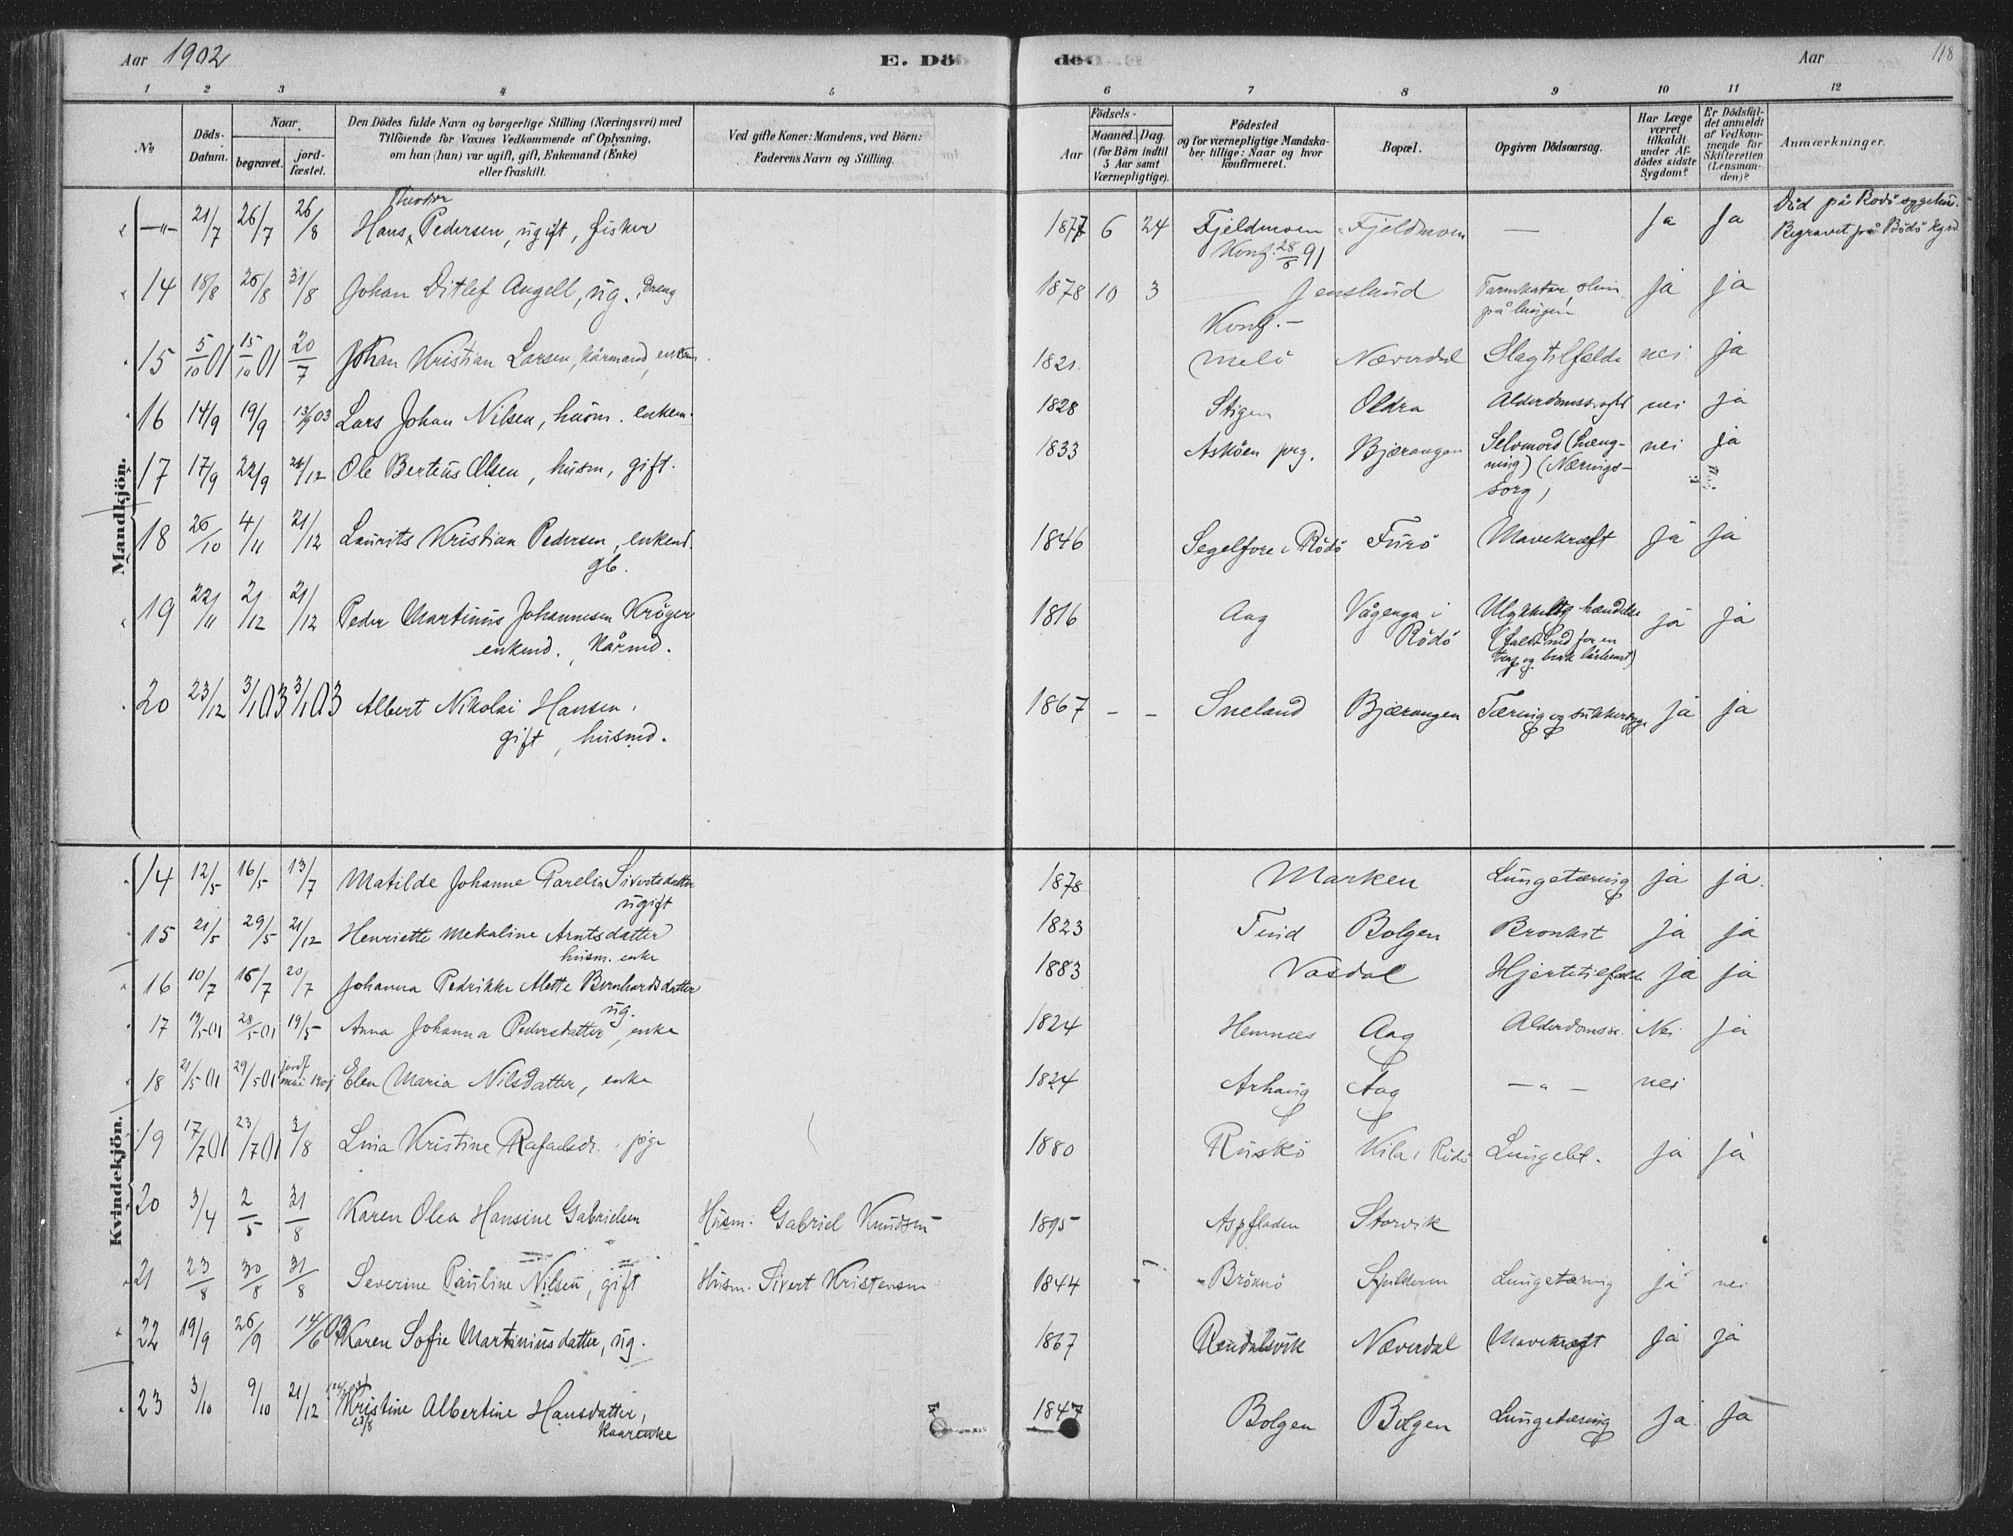 Aar 1902
E. Dö
döde.
Aar
118
1 2 3 4 5 6 7 8 9 10 11 12
No
Döds-Datum.
Naar
begravet.
jord-fæstet.
Den Dödes fulde Navn og borgerlige Stilling (Næringsvei) med
Tilföiende for Voxnes Vedkommende af Oplysning,
om han (hun) var ugift, gift, Enkemand (Enke)
eller fraskilt.
Ved gifte Koner: Mandens, ved Börn:
Faderens Navn og Stilling.
Födsels-
Aar
Maaned. Dag.
(for Börn indtil
5 Aar samt
Værnepligtige).
Födested
og for værnepligtige Mandska-
ber tillige: Naar og hvor
konfirmeret.
Bopæl.
Opgiven Dödsaarsag.
Har Læge
været
tilkaldt
under Af-
dödes sidste
Sygdom?
Er Dödsfal-
det anmeldt
af Vedkom-
mende for
Skifteretten
(Lensman-
den)?
Anmærkninger.
Mandkjön.
Theodor
—"— 21/7 26/7 26/8 Hans Pedersen, ugift, fisker 1877 6 24 Fjeldmoen Fjeldmoen — Ja Ja Död på Bodö sygehus.
Konf. 28/6 91 Begravet på Bodö kgrd
14 18/8 26/8 31/8 Johan Ditlef Angell, ug. dreng 1878 10 3 Jensland Tarmkatar, slim ja ja
på lungen
Konf. —
15 5/10 01 15/10 01 20/7 Johan Kristian Larsen, kårmand, enkem. 1821 Melö Næverdal Slagtilfælde nei ja
16 14/9 19/9 13/9 03 Lars Johan Nilsen, husm. enkem. 1828 Stigen Oldra Alderdomss. nei ja
17 17/9 22/9 21/12 Ole Berteus Olsen, husm, gift. 1833 Asköen prg. Bjærangen Selvmord (hæng- nei ja
ning) (Nærings-
sorg)
18 26/10 4/11 21/12 Laurits Kristian Pedersen, enkemd. 1846 Segelfore i Rödö Furö Mavekræft ja ja
gb.
19 22/11 2/12 21/12 Peder Martinus Johannesen Kröger 1816 Aag Vågenga i Ulykkelig hændelse ja ja
enkemd., kårmd. Rödö (faldt ned for en
trap og brak lårbenet)
20 23/12 3/1 03 3/1 03 Albert Nikolai Hansen, 1867 — — Sneland Bjærangen Tæring og sukkersyge ja ja
gift, husmd.
Kvindekjön.
14 12/5 16/5 13/7 Matilde Johanne Parelia Sivertsdatter 1878 Marken Lungetæring ja ja.
ugift
15 21/5 29/5 21/12 Henriette Mekaline Arntsdatter 1823 Teud Bolgen Bronkit ja ja
husm. enke
16 10/7 15/7 20/7 Johanna Pedrikke Alette Bernhardsdatter 1883 Vasdal Hjertetilfælde ja ja
ug.
17 19/5 01 28/5 01 19/5 Anna Johanna Pedersdatter, enke 1824 Hemnæs Aag Alderdomss. Nei ja
18 21/5 01 29/5 01 Elen Maria Nilsdatter, enke 1824 Arhaug Aag — " — nei
19 17/7 01 23/7 01 3/8 Lina Kristine Rafaelsdr. pige 1880 Ruskö Kila i Rödö Lungebet. ja ja
20 3/4 2/5 31/8 Karen Olea Hansine Gabrielsen Husm. Gabriel Knudsen 1895 Aspfladen Storvik
21 23/8 30/8 31/8 Severine Pauline Nilsen, gift Husm. Sivert Kristensen 1844 Brönnö Spilderen Lungetæring ja nei
22 19/9 26/9 14/6 03 Karen Sofie Martiniusdatter, ug. 1867 Rendalsvik Næverdal Mavekræft ja ja
23 3/10 9/10 21/12 Kristine Albertine Hansdatter, 1847 Bolgen Bolgen Lungetæring ja ja
Kaarenke